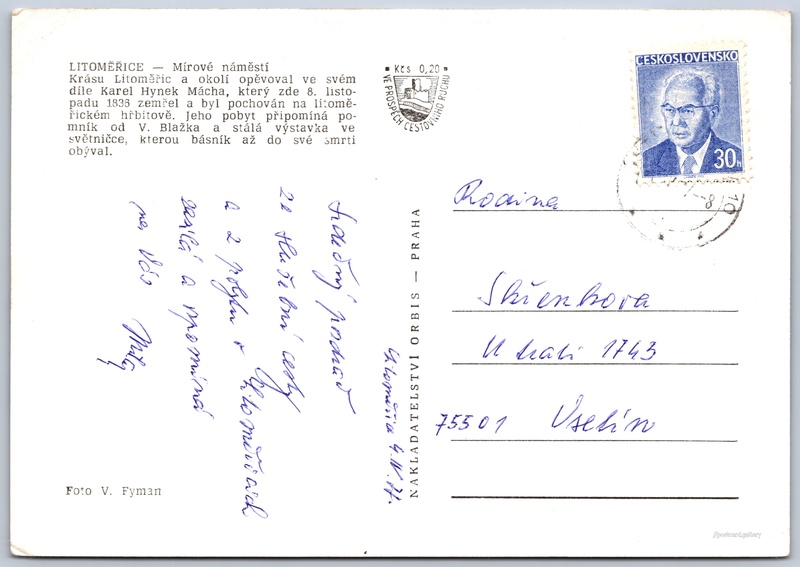 LITOMĚŘICE — Mírové náměstí
Krásu Litoměřic a okolí opěvoval ve svém
díle Karel Hynek Mácha, který zde 8. listo-
padu 1836 zemřel a byl pochován na litomě-
řickém hřbitově. Jeho pobyt připomíná po-
mník od V. Blažka a stálá výstavka ve
světničce, kterou básník až do své smrti
obýval.
Kčs 0,20
VE PROSPĚCH CESTOVNÍHO RUCHU
ČESKOSLOVENSKO
30h
Srdečný pozdrav
ze služební cesty
a z pobytu v Litoměřicích
zasílá a vzpomíná
na Vás
Litoměřice 4. IV. 77.
NAKLADATELSTVÍ ORBIS — PRAHA
Rodina
U trati 1743
75501 Vsetín
Foto V. Fyman